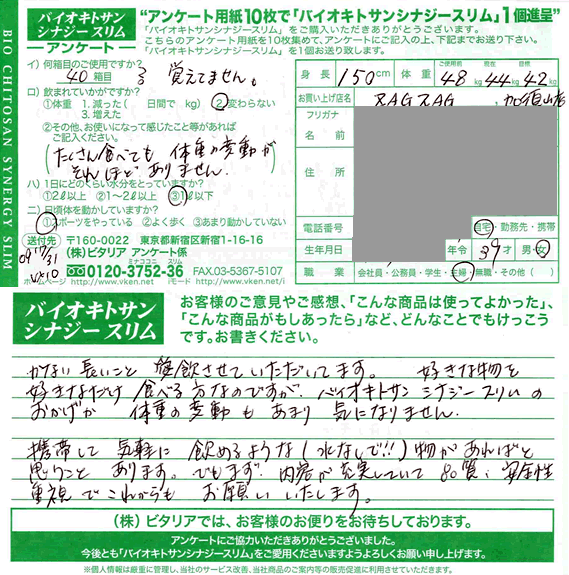 BIO CHITOSAN SYNERGY SLIM
バイオキトサン
シナジー スリム
ーアンケートー
"アンケート用紙10枚で「バイオキトサンシナジースリム」1個進呈"
「バイオキトサンシナジースリム」をご購入いただきありがとうございます。
こちらのアンケート用紙を10枚集めて、アンケートにご記入の上、下記までお送り下さい。
「バイオキトサンシナジースリム」を1個お送り致します。
イ)何箱目のご使用ですか?
40箱目 覚えてません。
ロ)飲まれていかがですか?
①体重 1.減った( 日間で kg) 2.変わらない
3.増えた
②その他、お使いになって感じたこと等があれば
ご記入ください。
(たくさん食べても 体重の変動が
それほど ありません.
ハ)1日にどのくらい水分をとっていますか?
①2ℓ以上 ②1〜2ℓ以上 ③1ℓ以下
ニ)日頃体を動かしていますか?
①スポーツをやっている ②よく歩く ③あまり動かしていない
身長 150cm 体重 使用前 48kg 現在 44kg 目標 42kg
お買い上げ店名 RAGRAG 加須山店
フリガナ
名前
住所
電話番号 自宅・勤務先・携帯
生年月日 年令 39才 男・女
職業 会社員・公務員・学生・主婦・無職・その他( )
送付先 〒160-0022 東京都新宿区新宿1-16-16
(株)ビタリア アンケート係
ミナココニ スリム
0120-3752-36 FAX.03-5367-5107
ホームページ http://www.vken.net/ iモード http://www.vken.net/i
バイオキトサン
シナジー スリム
お客様のご意見やご感想、「こんな商品は使ってよかった」、
「こんな商品がもしあったら」など、どんなことでもけっこう
です。お書きください。
かない長いこと 愛飲させていただいてます。 好きな物を
好きなだけ 食べる方なのですが、バイオキトサン シナジースリムの
おかげか 体重の変動も あまり 気になりません.
携帯して 気軽に 飲めるような(水なしで!!)物があればと
思うこと あります。でもまず、内容が充実していて 品質、安全性
重視で これからも お願い いたします。
(株)ビタリアでは、お客様のお便りをお待ちしております。
アンケートにご協力いただきありがとうございました。
今後とも「バイオキトサンシナジースリム」をご愛用くださいますようよろしくお願い申し上げます。
※個人情報は厳重に管理し、当社のサービス改善、当社商品のご案内等の販売促進に利用させていただきます。